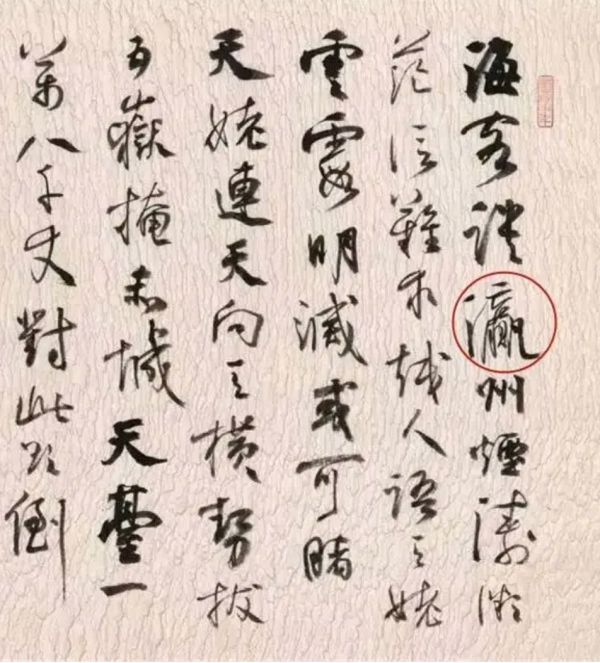 海客談瀛州煙濤微
茫信難求越人語天姥
雲霞明滅或可睹
天姥連天向天橫勢拔
五嶽掩赤城天臺一
萬八千丈對此欲倒